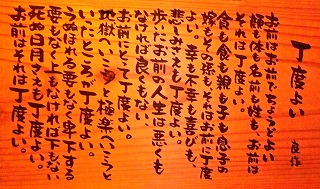 丁度よい 良寛
お前はお前でちょうどよい
顔も体も名前も姓も、お前は
それは丁度よい。
貧も富も親も子も息子の
嫁もその孫も、それはお前に丁度
よい。幸も不幸も喜びも、
悲しみさえも丁度よい。
歩いたお前の人生は悪くも
なければ良くもない。
お前にとって丁度よい。
地獄へいこうと極楽へいこうと
いったところが丁度よい。
うぬぼれる要もなく卑下する
要もなく上もなければ下もない
死ぬ日月さえも丁度よい。
お前はそれは丁度よい。